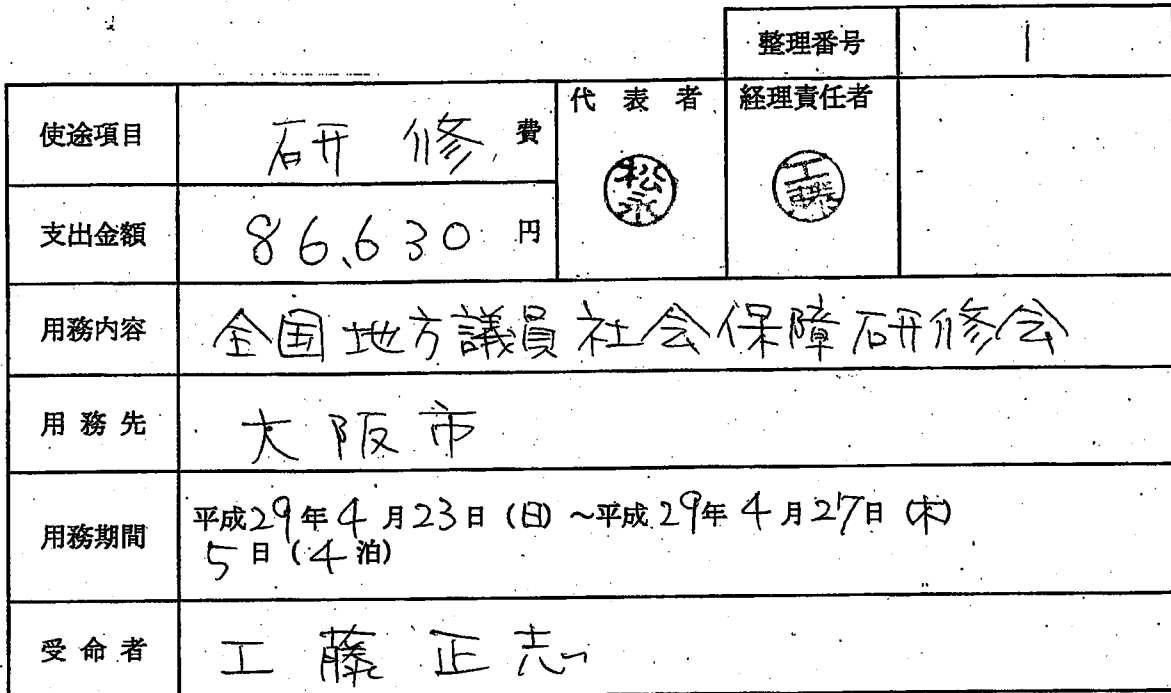 整理番号 1
使途項目 研修費 代表者 経理責任者
松永 工藤
支出金額 86,630 円
用務内容 全国地方議員社会保障研修会
用務先 大阪市
用務期間 平成29年4月23日(日)~平成29年4月27日(木)
5日(4泊)
受命者 工藤正志